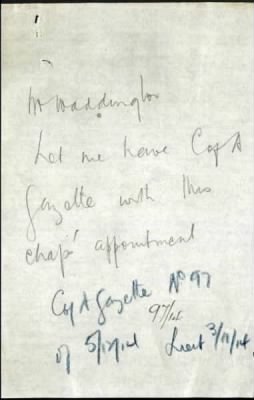 Mr Waddington
Let me have Cof A
Gazette with this
chap's appointment
Cof A Gazette No 97
97/14
of 5/12/14 Lieut 3/11/14